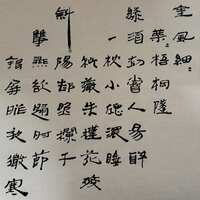 金風細〻
葉〻梧桐墜
綠酒初嘗人易醉
一枕小窗濃睡
紫薇朱槿花殘
斜陽却照欄干
雙燕欲歸時節
銀屏昨夜微寒